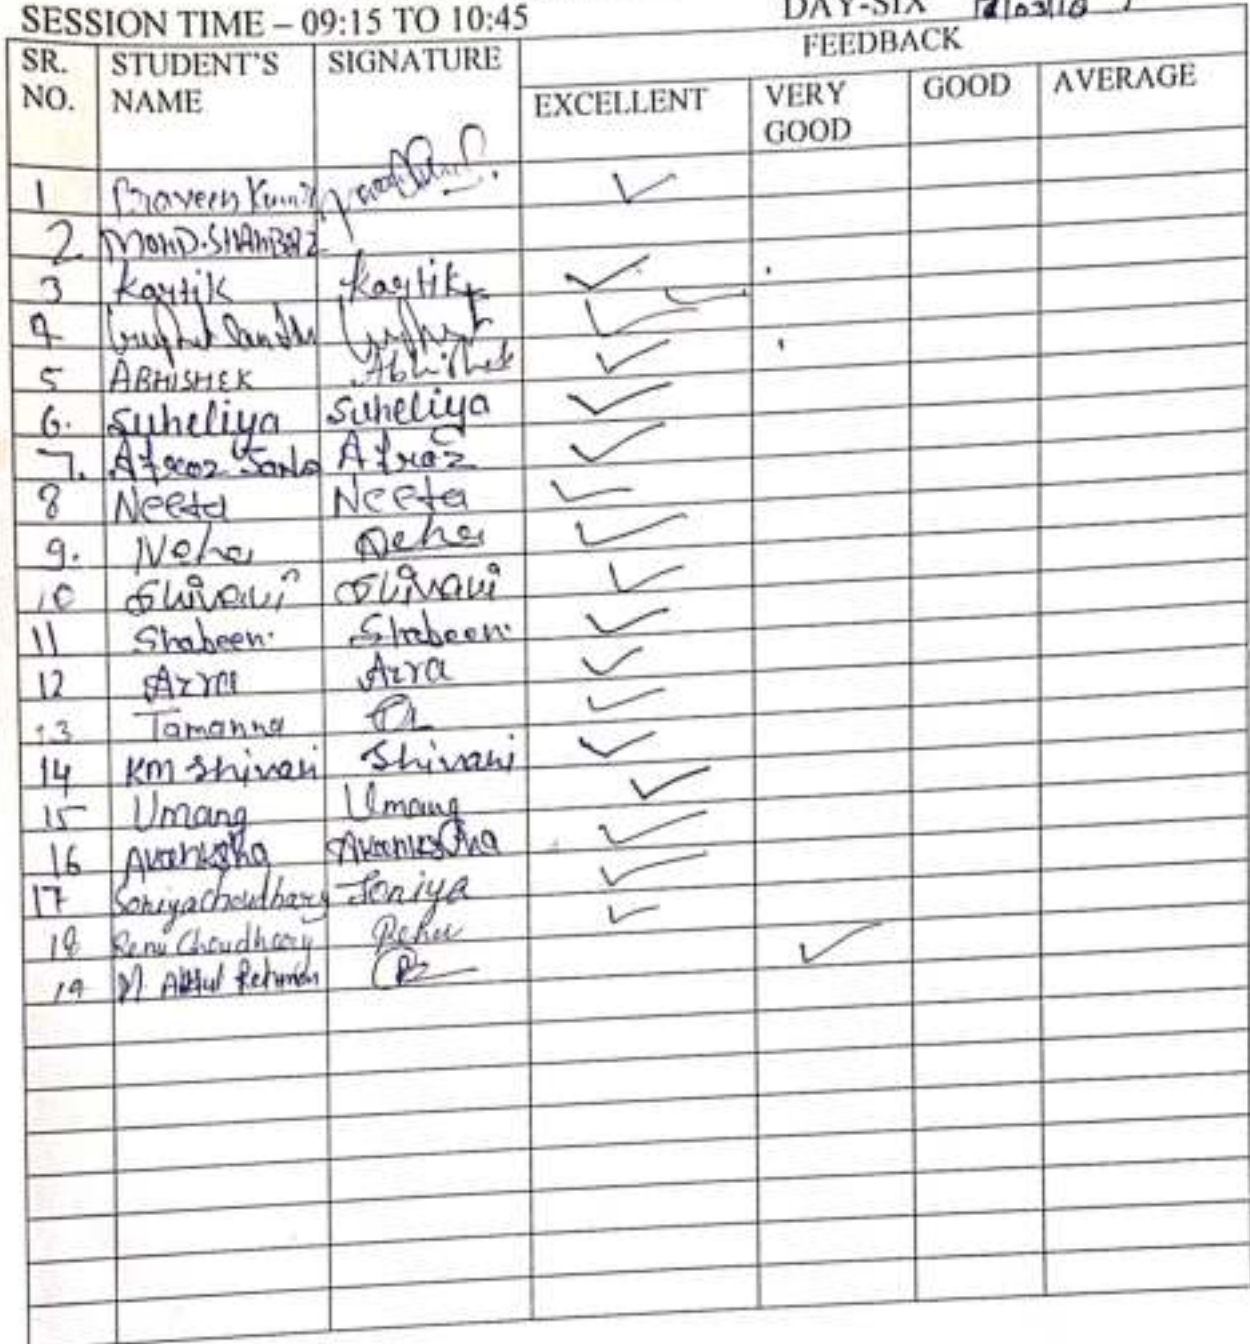 SESSION TIME – 09:15 TO 10:45 DAY-SIX
SR. NO. STUDENT'S NAME SIGNATURE FEEDBACK
EXCELLENT VERY GOOD GOOD AVERAGE
1 Praveen Kumar
2 MOHD.SHAHBAZ
3 Kartik Kartik
4
5 ABHISHEK Abhishek
6. Suheliya Suheliya
7. Afroz Afroz
8 Neeta Neeta
9. Neha Neha
10 Shivani Shivani
11 Shabeen Shabeen
12 Azra Azra
13 Tamanna
14 KM Shivani Shivani
15 Umang Umang
16 Akanksha Akanksha
17 Soniya Choudhary Soniya
18 Renu Choudhary Renu
19 Rehman